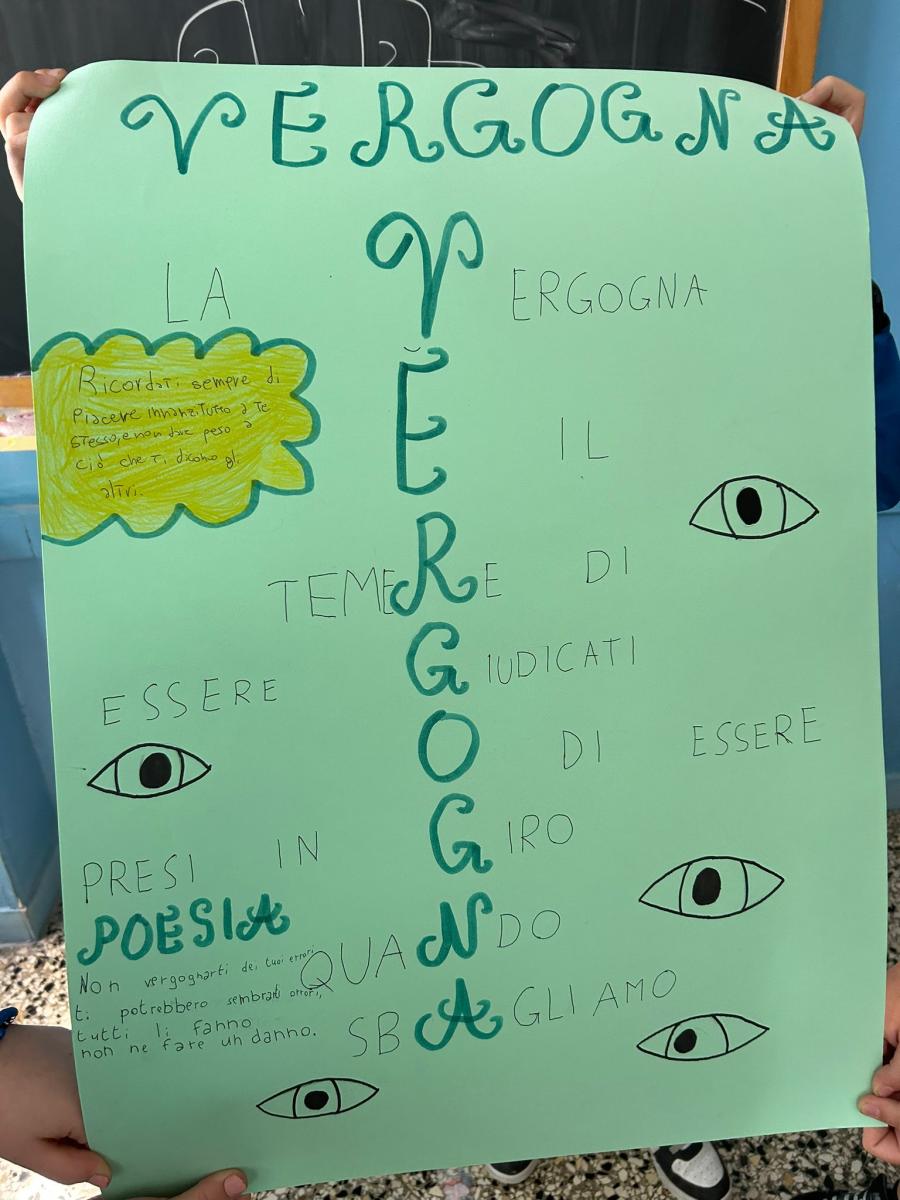 VERGOGNA
LA VERGOGNA
Ricordati sempre di
piacere innanzitutto a te
stesso, e non dare peso a
ciò che ti dicono gli
altri.
È IL
TEMERE DI
ESSERE GIUDICATI
O DI ESSERE
PRESI IN GIRO
QUANDO
SBAGLIAMO
POESIA
Non vergognarti dei tuoi errori
ti potrebbero sembrati orrori,
tutti li fanno
non ne fare un danno.